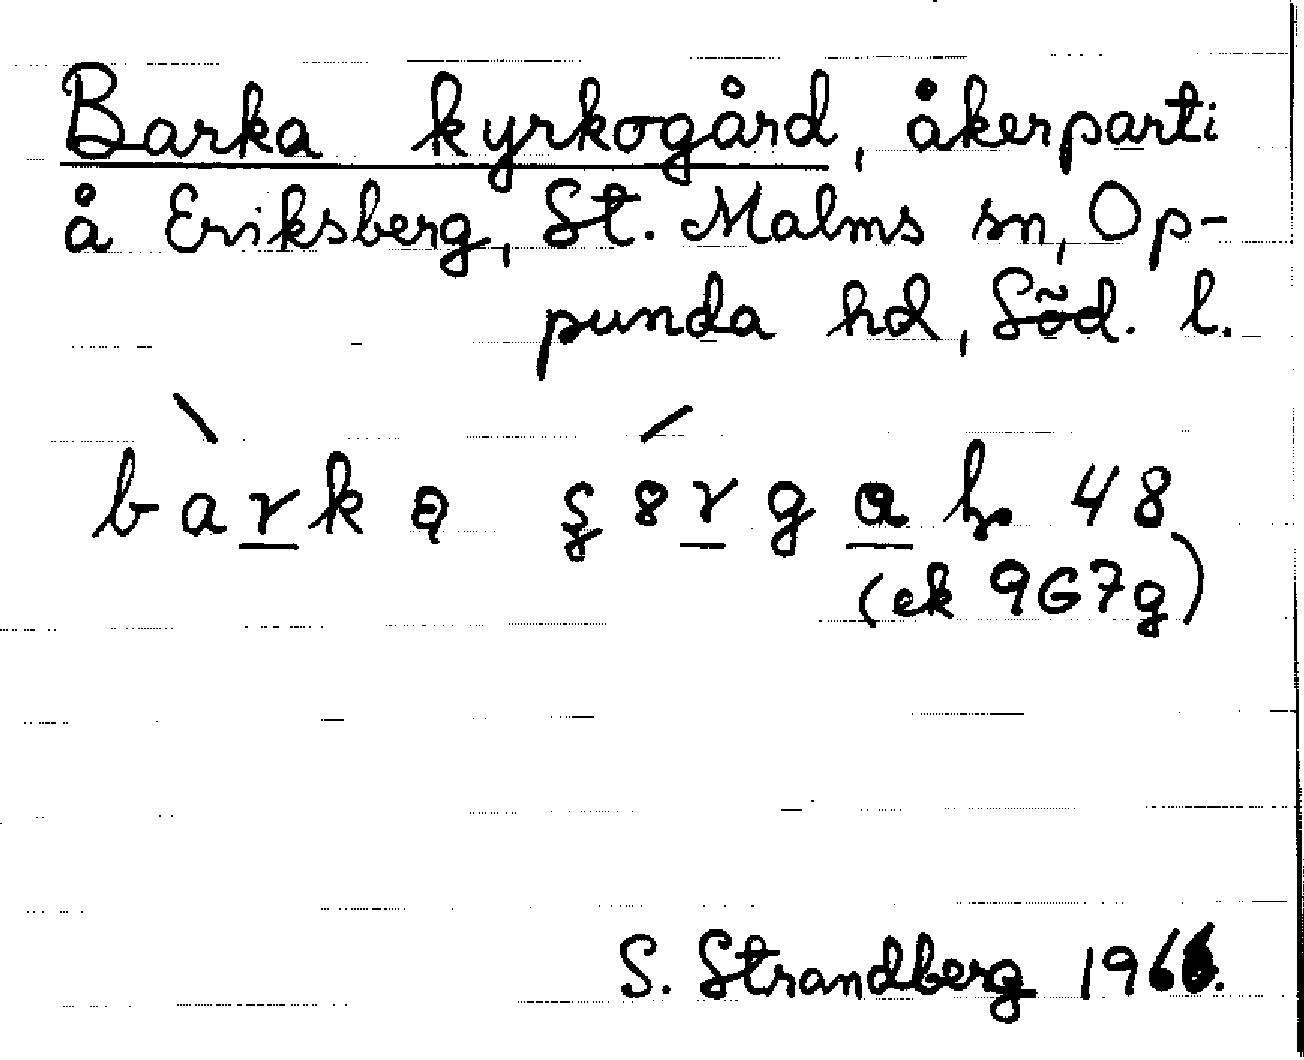 Barka kyrkogård, åkerparti
å Eriksberg, St. Malms sn, Op-
punda hd, Söd. l.
48
(ek 967g)
S. Strandberg 1966.